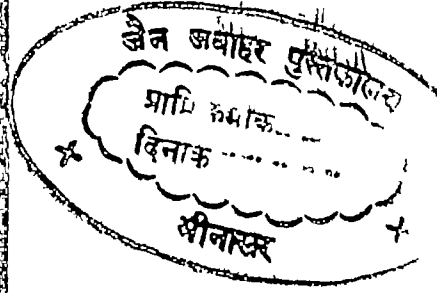 जैन जवाहर पुस्तकालय
प्राप्ति क्रमांक.....
दिनांक ..............
भीनासर